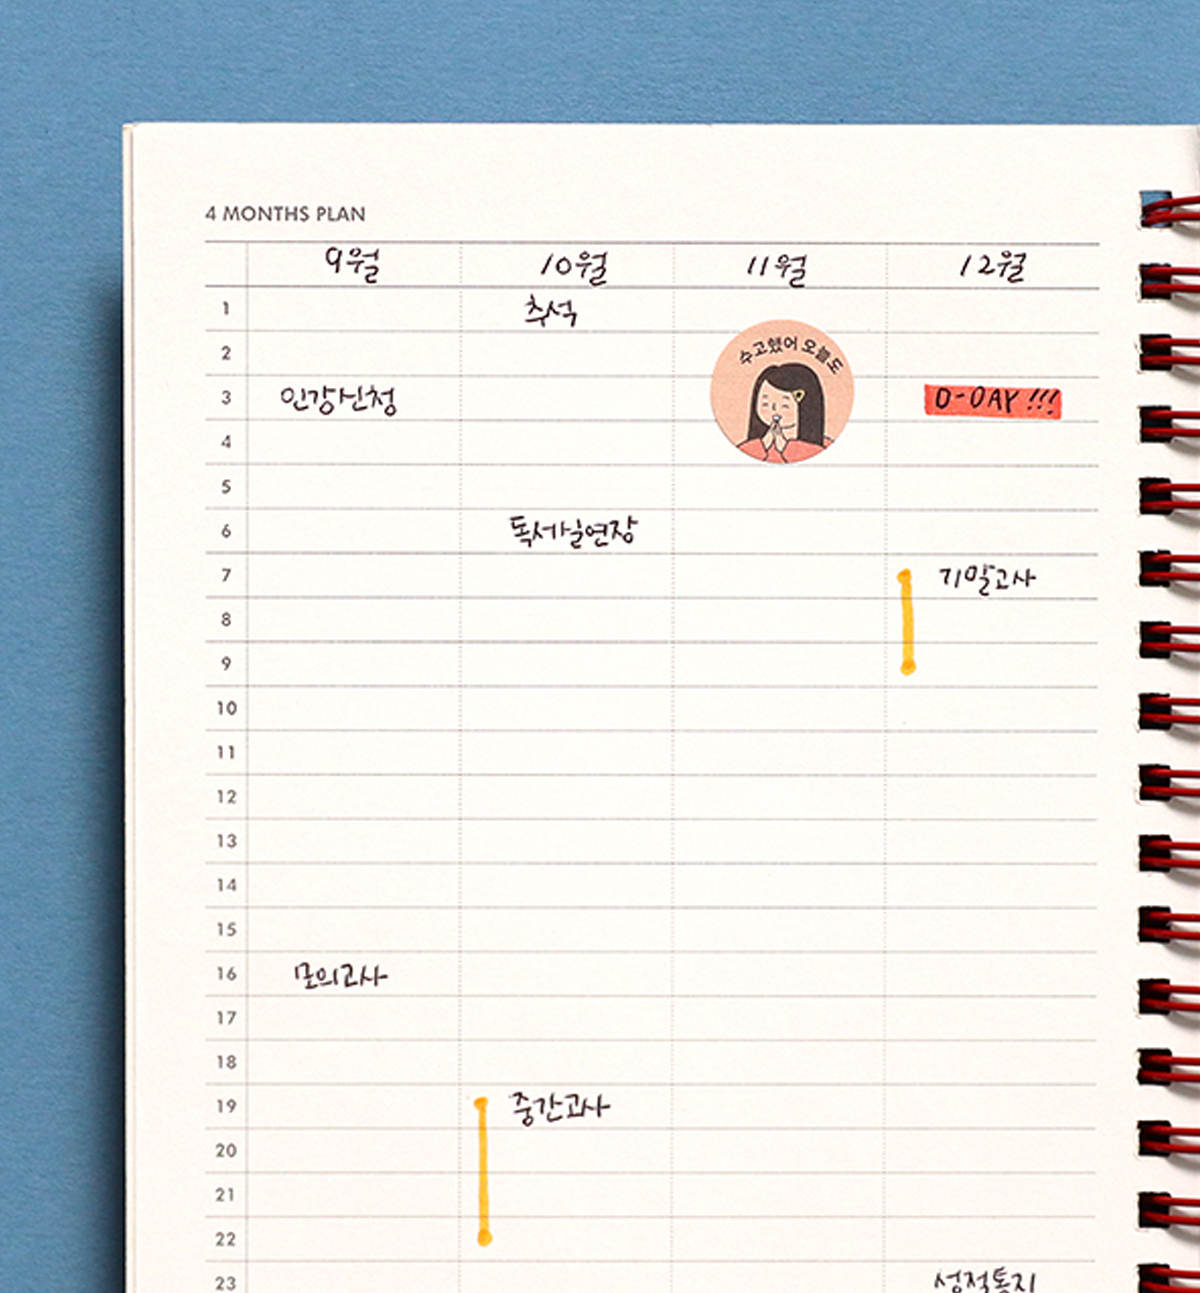 4 MONTHS PLAN
9월 10월 11월 12월
1 추석
2 수고했어 오늘도
3 인강신청 D-DAY !!!
4
5
6 독서실연장
7 기말고사
8
9
10
11
12
13
14
15
16 모의고사
17
18
19 중간고사
20
21
22
23 성적통지